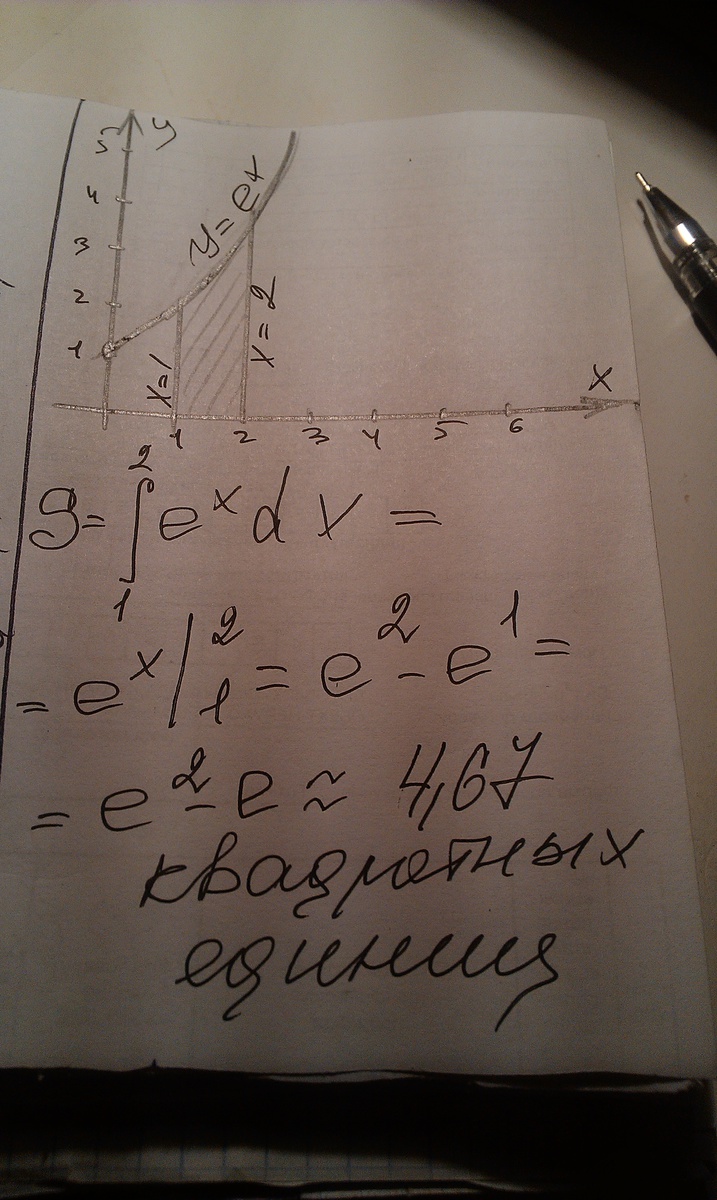 y
5
4
3
2
1
y = e^x
x=1
x=2
x
1 2 3 4 5 6
S = ∫₁² e^x dx =
= e^x |₁² = e^2 - e^1 =
= e^2 - e ≈ 4,67
квадратных
единиц